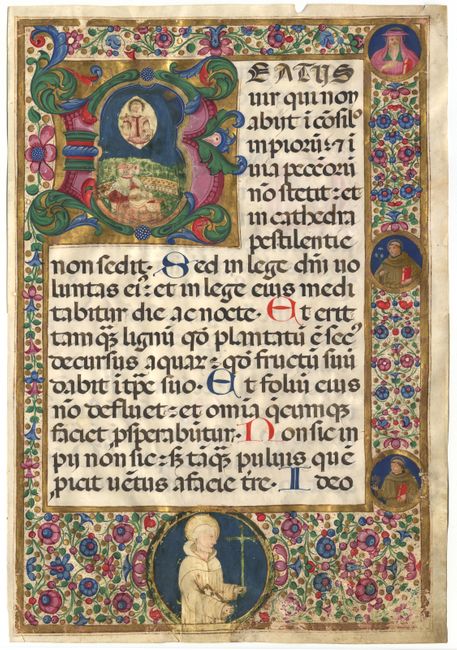 BEATUS
uir qui non
abijt i cōsilꝰ
impiorū: ⁊ i
uia peccorū
nō stetit: et
in cathedra
pestilentie
non sedit. Sed in lege dnī uo
luntas eiꝰ: et in lege eius medi
tabitur die ac nocte. Et erit
tamꝗ̄ lignū qd̄ plantatū ē secꝰ
decursus aquaꝝ: qd̄ fructū suū
dabit i tp̄e suo. Et foliū eius
nō defluet: et omīa q̄cumꝗꝫ
faciet ꝓsperabūtur. Non sic im
pij non sic: sꝫ tāꝗ̄ puluis quē
ꝓicit uētus a facie tr̄e. Ideo